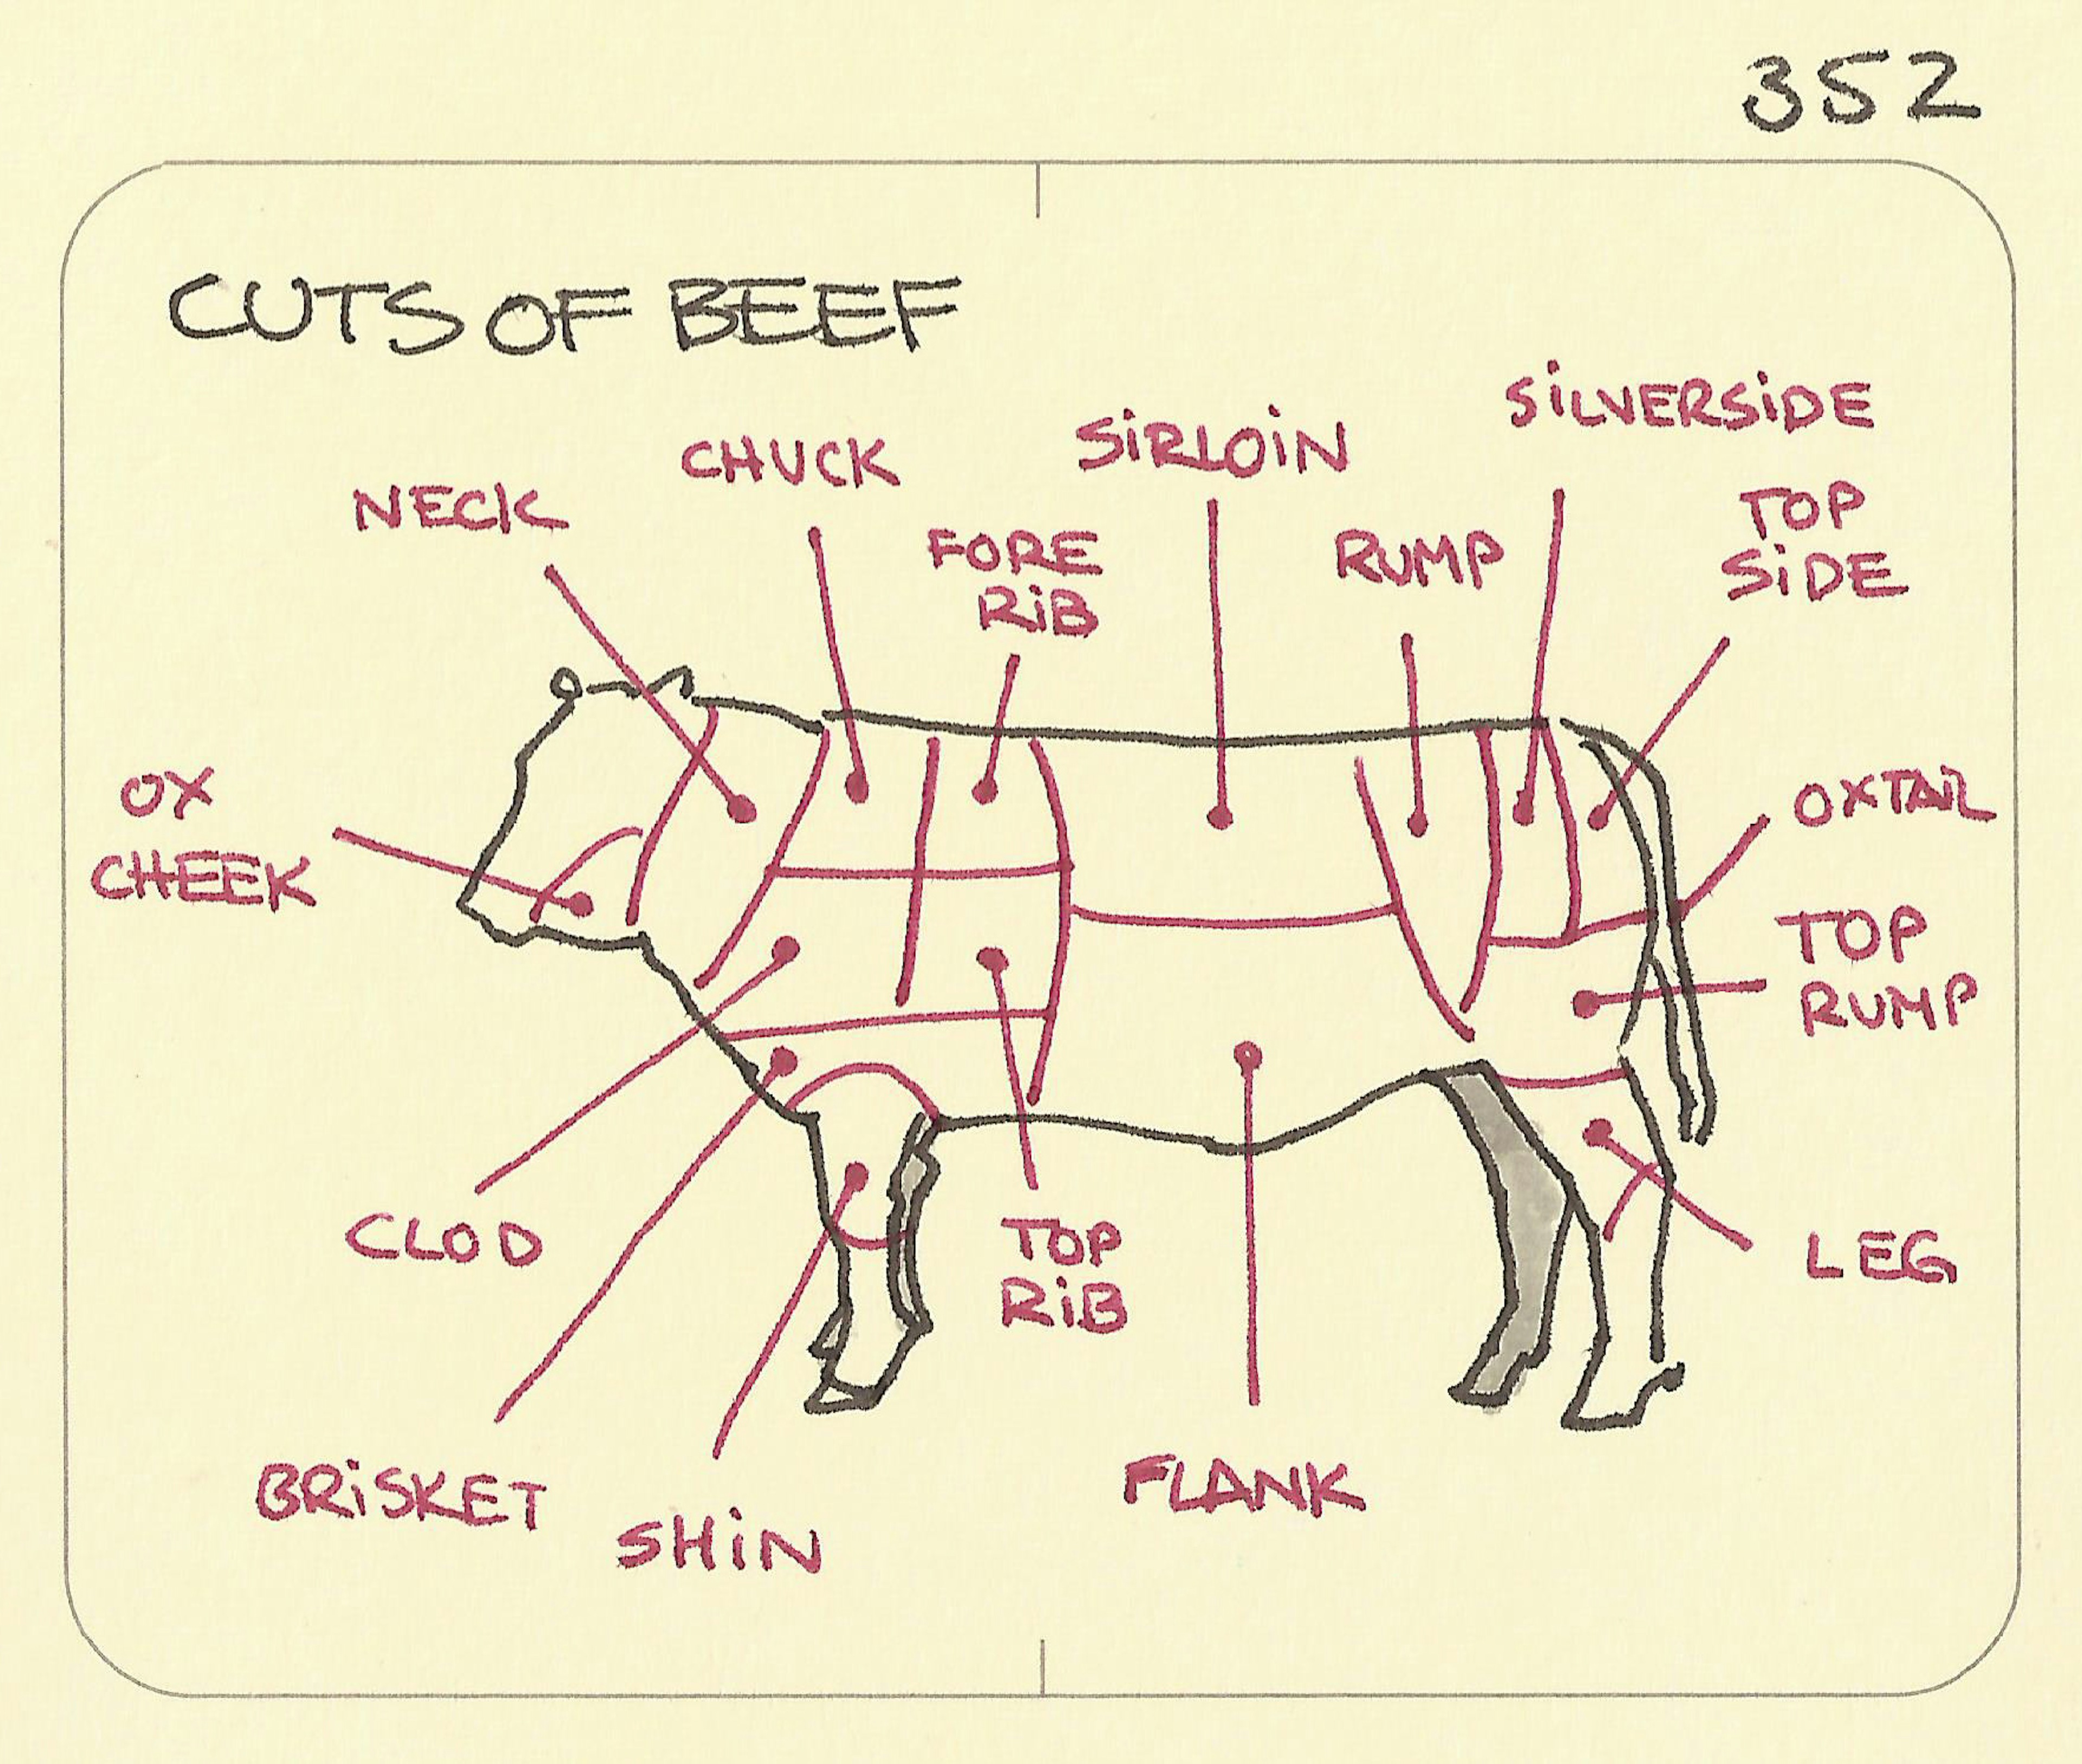 352
CUTS OF BEEF
SiLVERSiDE
SiRLOiN
CHUCK
NECK
TOP
SiDE
FORE
RiB
RUMP
OX
CHEEK
OXTAIL
TOP
RUMP
CLOD
TOP
RiB
LEG
BRiSKET
SHiN
FLANK